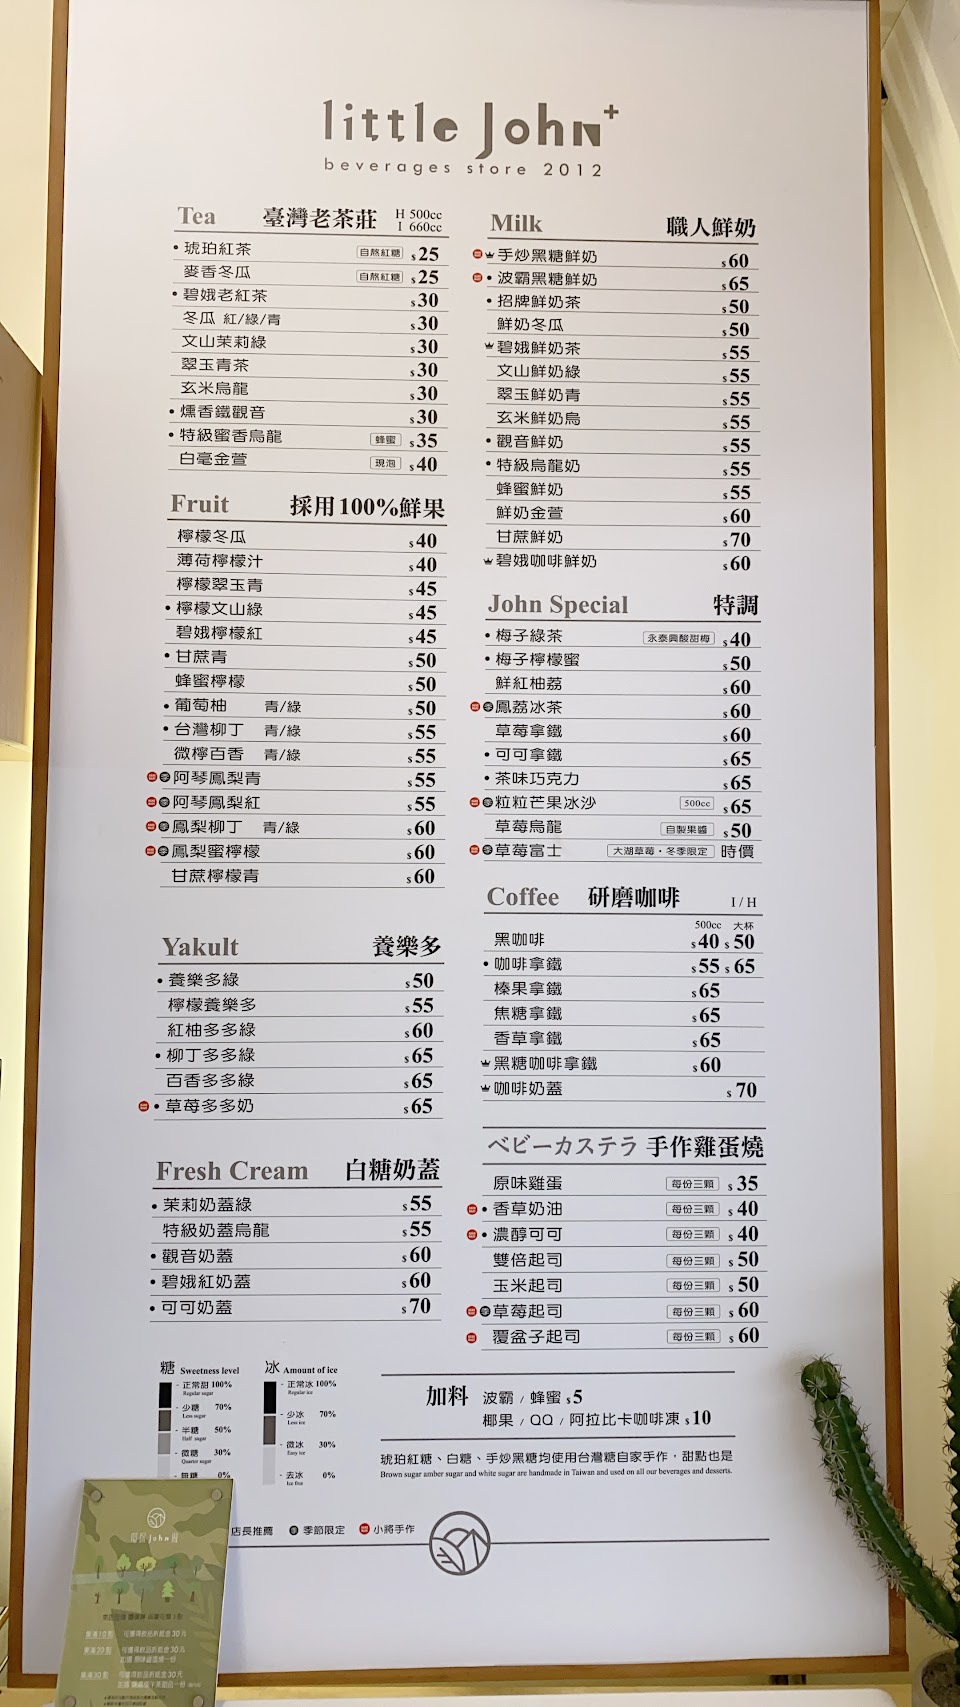 little John+
beverages store 2012
Tea 臺灣老茶莊 H 500cc
I 660cc
• 琥珀紅茶 自熬紅糖 $25
麥香冬瓜 自熬紅糖 $25
• 碧娥老紅茶 $30
冬瓜 紅/綠/青 $30
文山茉莉綠 $30
翠玉青茶 $30
玄米烏龍 $30
• 燻香鐵觀音 $30
• 特級蜜香烏龍 蜂蜜 $35
白毫金萱 現泡 $40
Fruit 採用100%鮮果
檸檬冬瓜 $40
薄荷檸檬汁 $40
檸檬翠玉青 $45
• 檸檬文山綠 $45
碧娥檸檬紅 $45
• 甘蔗青 $50
蜂蜜檸檬 $50
• 葡萄柚 青/綠 $50
• 台灣柳丁 青/綠 $55
微檸百香 青/綠 $55
季 阿琴鳳梨青 $55
季 阿琴鳳梨紅 $55
季 鳳梨柳丁 青/綠 $60
季 鳳梨蜜檸檬 $60
甘蔗檸檬青 $60
Yakult 養樂多
• 養樂多綠 $50
檸檬養樂多 $55
紅柚多多綠 $60
• 柳丁多多綠 $65
百香多多綠 $65
• 草莓多多奶 $65
Fresh Cream 白糖奶蓋
• 茉莉奶蓋綠 $55
特級奶蓋烏龍 $55
• 觀音奶蓋 $60
• 碧娥紅奶蓋 $60
• 可可奶蓋 $70
Milk 職人鮮奶
手炒黑糖鮮奶 $60
• 波霸黑糖鮮奶 $65
• 招牌鮮奶茶 $50
鮮奶冬瓜 $50
碧娥鮮奶茶 $55
文山鮮奶綠 $55
翠玉鮮奶青 $55
玄米鮮奶烏 $55
• 觀音鮮奶 $55
• 特級烏龍奶 $55
蜂蜜鮮奶 $55
鮮奶金萱 $60
甘蔗鮮奶 $70
碧娥咖啡鮮奶 $60
John Special 特調
• 梅子綠茶 永泰興酸甜梅 $40
• 梅子檸檬蜜 $50
鮮紅柚荔 $60
季 鳳荔冰茶 $60
草莓拿鐵 $60
• 可可拿鐵 $65
• 茶味巧克力 $65
季 粒粒芒果冰沙 500cc $65
草莓烏龍 自製果醬 $50
季 草莓富士 大湖草莓・冬季限定 時價
Coffee 研磨咖啡 I / H
500cc 大杯
黑咖啡 $40 $50
• 咖啡拿鐵 $55 $65
榛果拿鐵 $65
焦糖拿鐵 $65
香草拿鐵 $65
黑糖咖啡拿鐵 $60
咖啡奶蓋 $70
ベビーカステラ 手作雞蛋燒
原味雞蛋 每份三顆 $35
• 香草奶油 每份三顆 $40
• 濃醇可可 每份三顆 $40
雙倍起司 每份三顆 $50
玉米起司 每份三顆 $50
季 草莓起司 每份三顆 $60
覆盆子起司 每份三顆 $60
糖 Sweetness level
- 正常甜 100%
Regular sugar
- 少糖 70%
Less sugar
- 半糖 50%
Half sugar
- 微糖 30%
Quarter sugar
- 無糖 0%
冰 Amount of ice
- 正常冰 100%
Regular ice
- 少冰 70%
Less ice
- 微冰 30%
Easy ice
- 去冰 0%
Ice free
加料 波霸 / 蜂蜜 $5
椰果 / QQ / 阿拉比卡咖啡凍 $10
琥珀紅糖、白糖、手炒黑糖均使用台灣糖自家手作，甜點也是
Brown sugar amber sugar and white sugar are handmade in Taiwan and used on all our beverages and desserts.
店長推薦 季 季節限定 小將手作
集滿10點 可獲得飲品折抵金30元
集滿20點 可獲得飲品折抵金30元
集滿30點 可獲得飲品折抵金30元